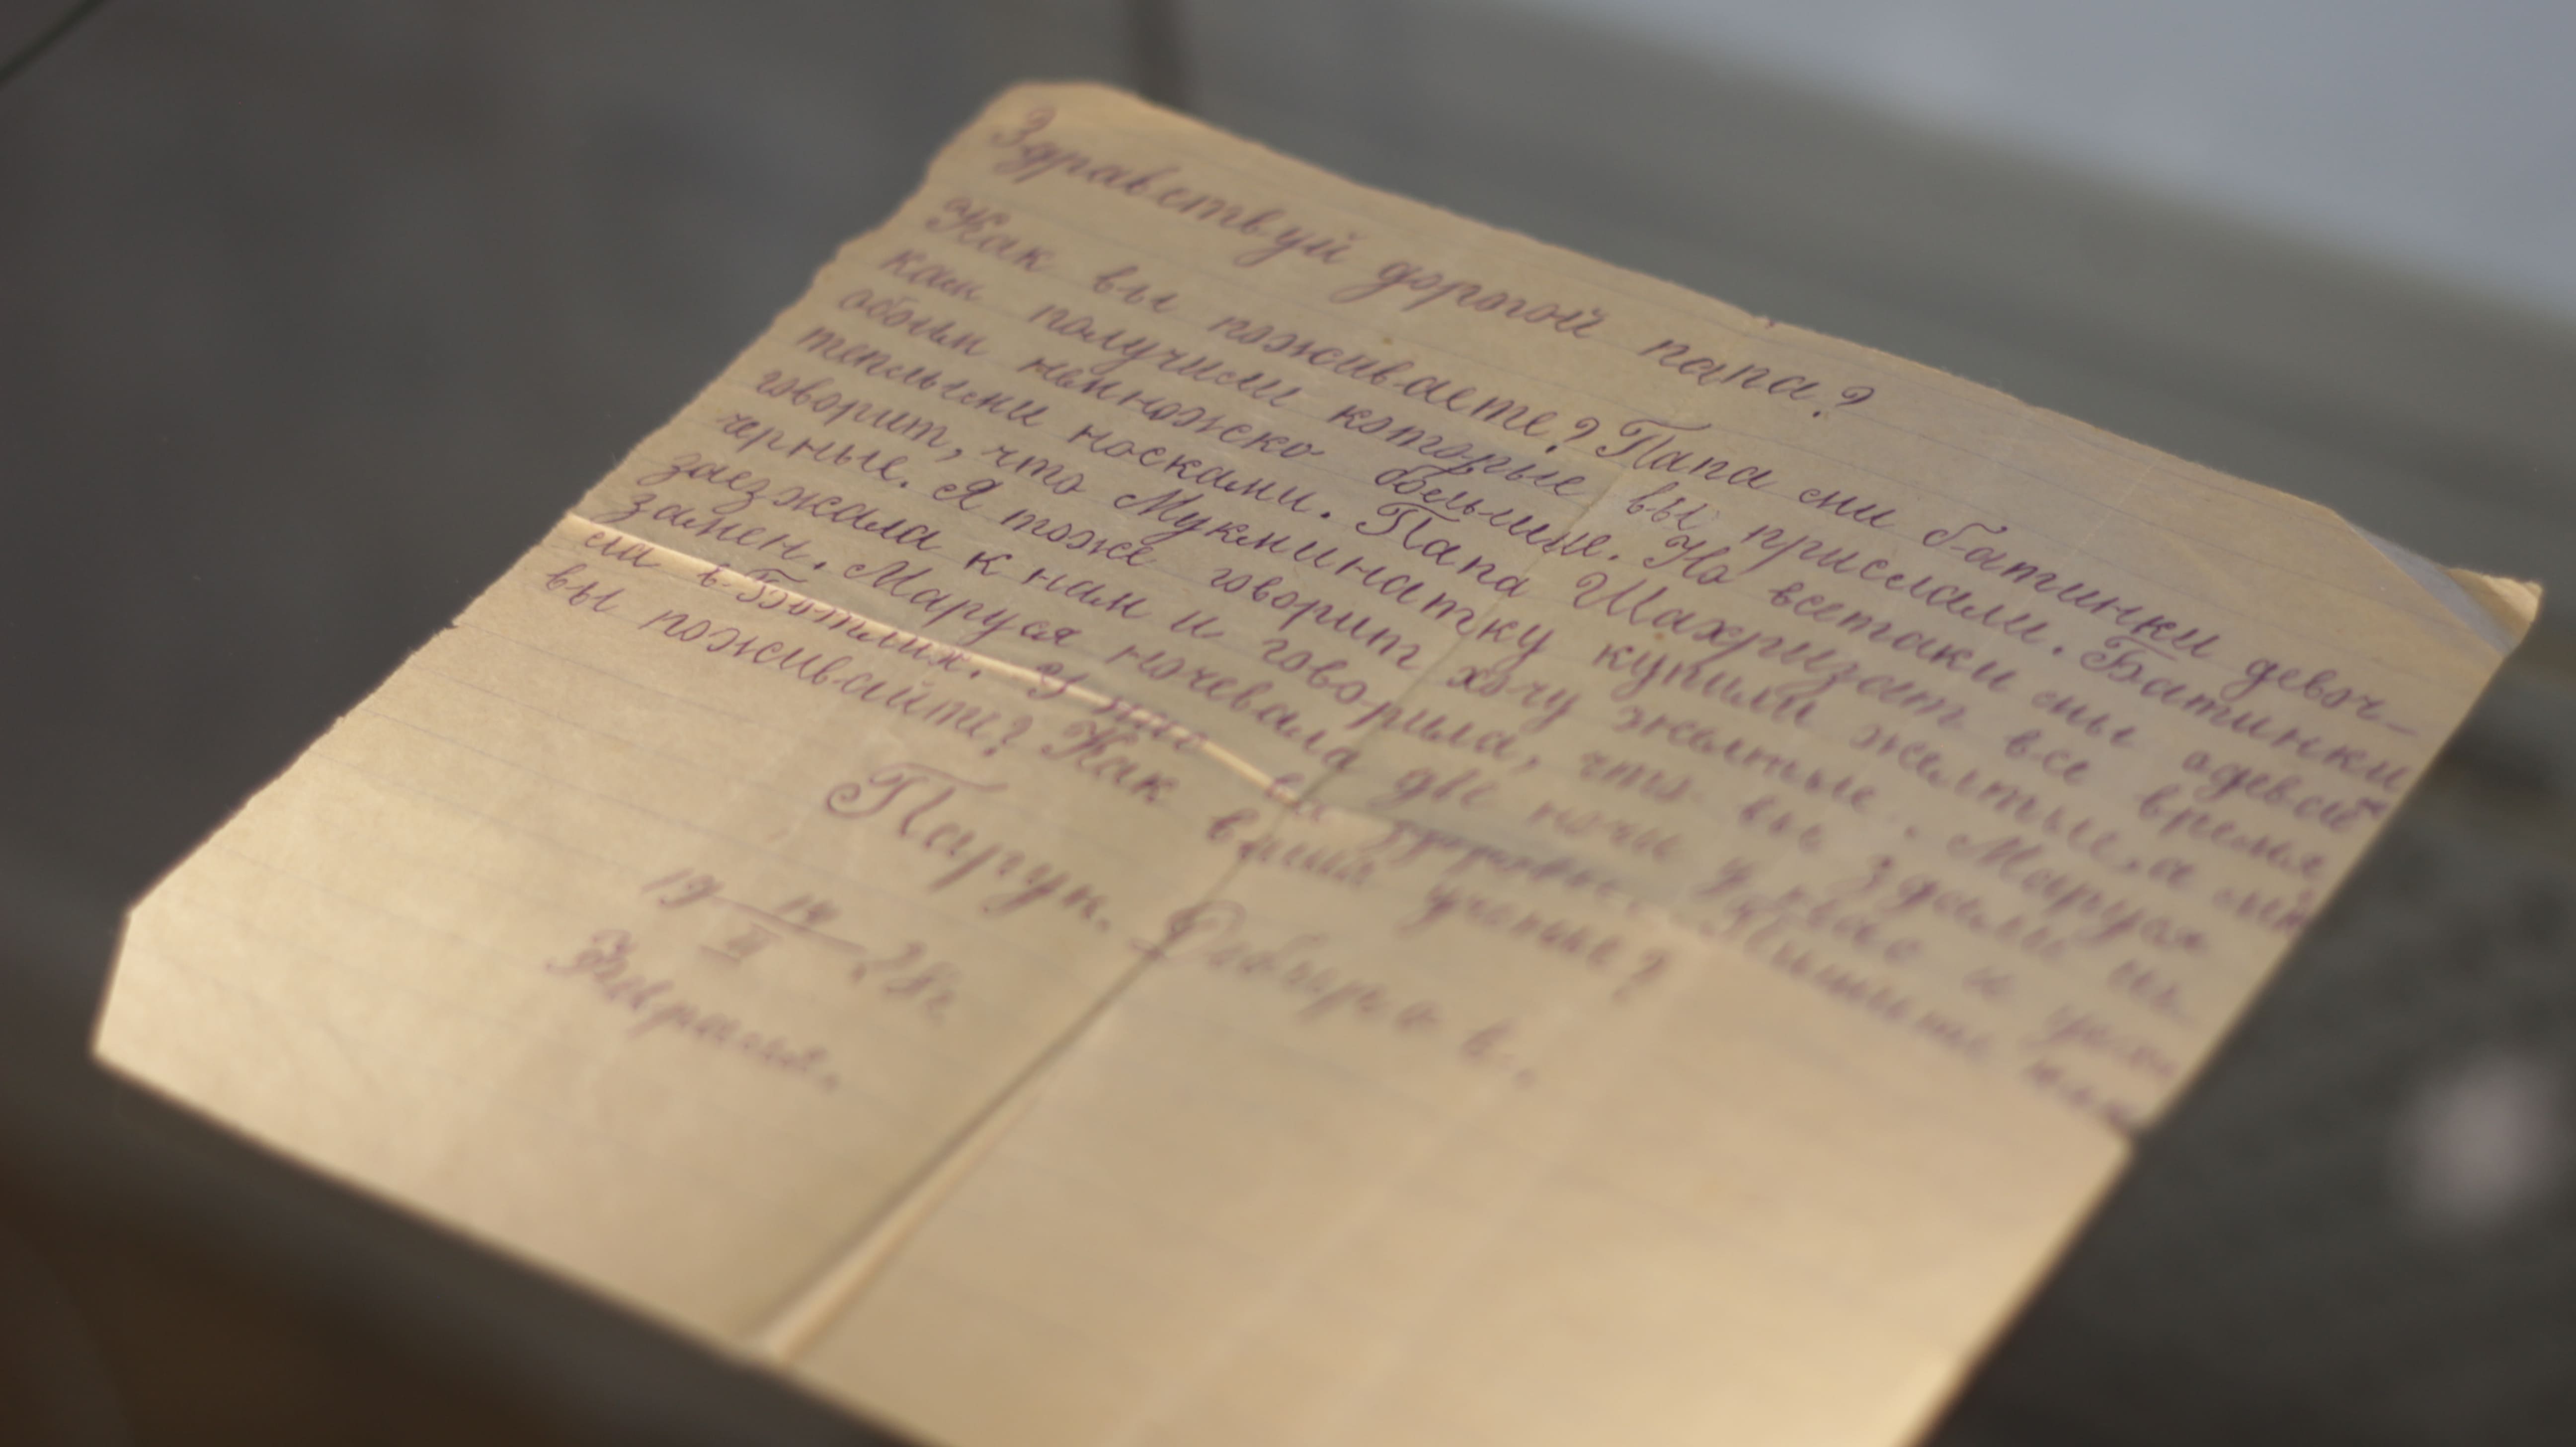 Здравствуй дорогой папа?
Как вы поживаете? Папа мы батинки девоч-
кам получили которые вы прислали. Батинки
обоим немножко большие. Но всетаки мы одевай
теплыми носками. Папа Шахризат все время
говорит, что Мукминатку купили желтые, а мне
черные. Я тоже говорит хочу желтые. Маруся
заезжала к нам и говорила, что вы здали
замен. Маруся ночевала две ночи у нас и
ла в Ботлих. У нас все Пишите
вы поживайте? Как ваша учение?
Парук. в.
19 14/II 38г
Февраля.